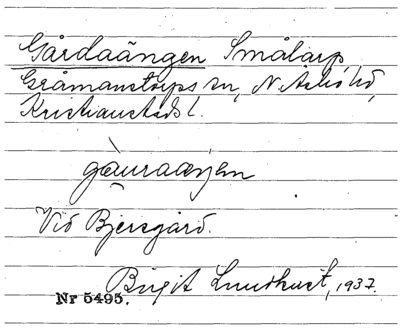 Gårdaängen Smålarp
Gråmanstorps sn, N. Åsbo hd,
Kristianstads l.
gå̀uraæŋen
Vid Bjersgård.
Birgit Lundkvist, 1937.
Nr 5495.